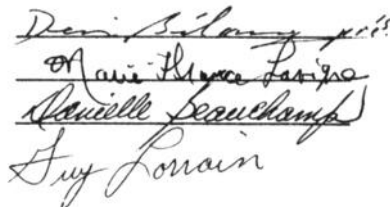 Denis Bélanger prés
Marie France Lavigne
Danielle Beauchamp
Guy Lorrain